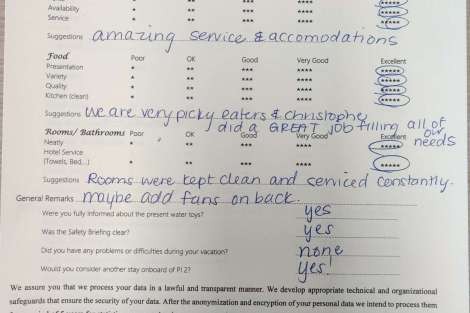 * ** *** **** *****
Availability * ** *** **** *****
Service * ** *** **** *****
Suggestions amazing service & accomodations
Food Poor OK Good Very Good Excellent
Presentation * ** *** **** *****
Variety * ** *** **** *****
Quality * ** *** **** *****
Kitchen (clean) * ** *** **** *****
Suggestions We are very picky eaters & christophe
did a GREAT job filling all of
our
needs
Rooms/ Bathrooms Poor OK Good Very Good Excellent
Neatly * ** *** **** *****
Hotel Service
(Towels, Bed...) * ** *** **** *****
Suggestions Rooms were kept clean and serviced constantly.
General Remarks maybe add fans on back.
Were you fully informed about the present water toys? yes
Was the Safety Briefing clear? yes
Did you have any problems or difficulties during your vacation? none
Would you consider another stay onboard of PI 2? yes!
We assure you that we process your data in a lawful and transparent manner. We develop appropriate technical and organizational
safeguards that ensure the security of your data. After the anonymization and encryption of your personal data we intend to process them